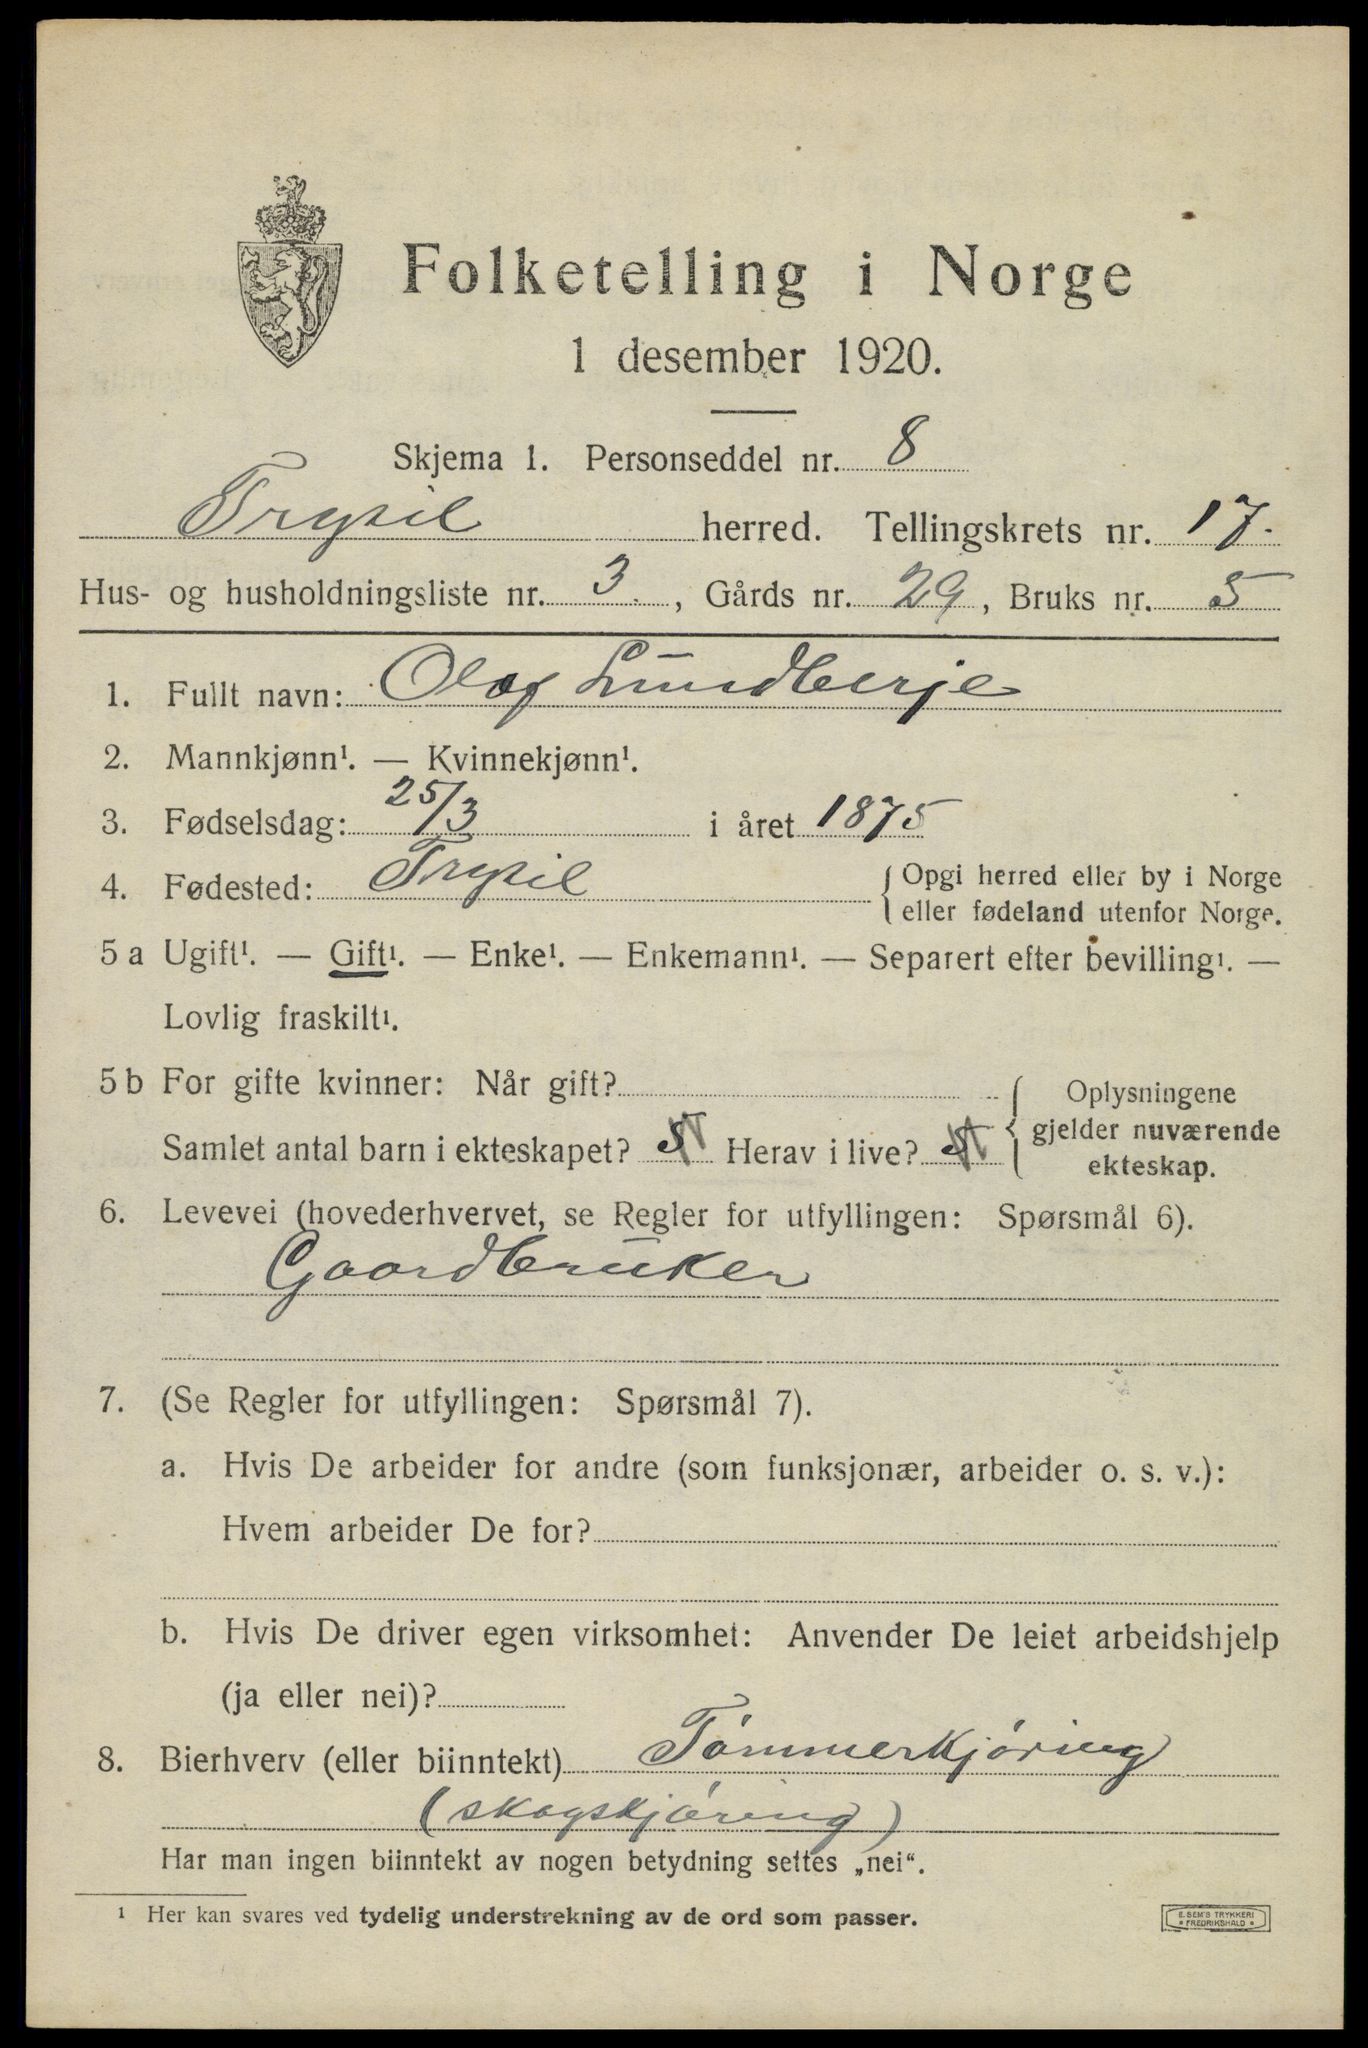 Folketelling i Norge
1 desember 1920.
Skjema 1. Personseddel nr. 8
Trysil herred. Tellingskrets nr. 17.
Hus- og husholdningsliste nr. 3. , Gårds nr. 29, Bruks nr. 5
1. Fullt navn: Olof Lundberje
2. Mannkjønn¹. — Kvinnekjønn¹.
3. Fødselsdag: 25/3 i året 1875
4. Fødested: Trysil { Opgi herred eller by i Norge
eller fødeland utenfor Norge.
5 a Ugift¹. — Gift¹. — Enke¹. — Enkemann¹. — Separert efter bevilling¹. —
Lovlig fraskilt¹.
5 b For gifte kvinner: Når gift? { Oplysningene
gjelder nuværende
Samlet antal barn i ekteskapet? 5 Herav i live? 5
ekteskap.
6. Levevei (hovederhvervet, se Regler for utfyllingen: Spørsmål 6).
Gaardbruker
7. (Se Regler for utfyllingen: Spørsmål 7).
a. Hvis De arbeider for andre (som funksjonær, arbeider o. s. v.):
Hvem arbeider De for?
b. Hvis De driver egen virksomhet: Anvender De leiet arbeidshjelp
(ja eller nei)?
8. Bierhverv (eller biinntekt) Tømmerkjøring
(skogskjøring)
Har man ingen biinntekt av nogen betydning settes „nei“.
¹ Her kan svares ved tydelig understrekning av de ord som passer.
E. SEM'S TRYKKERI
• FREDRIKSHALD •